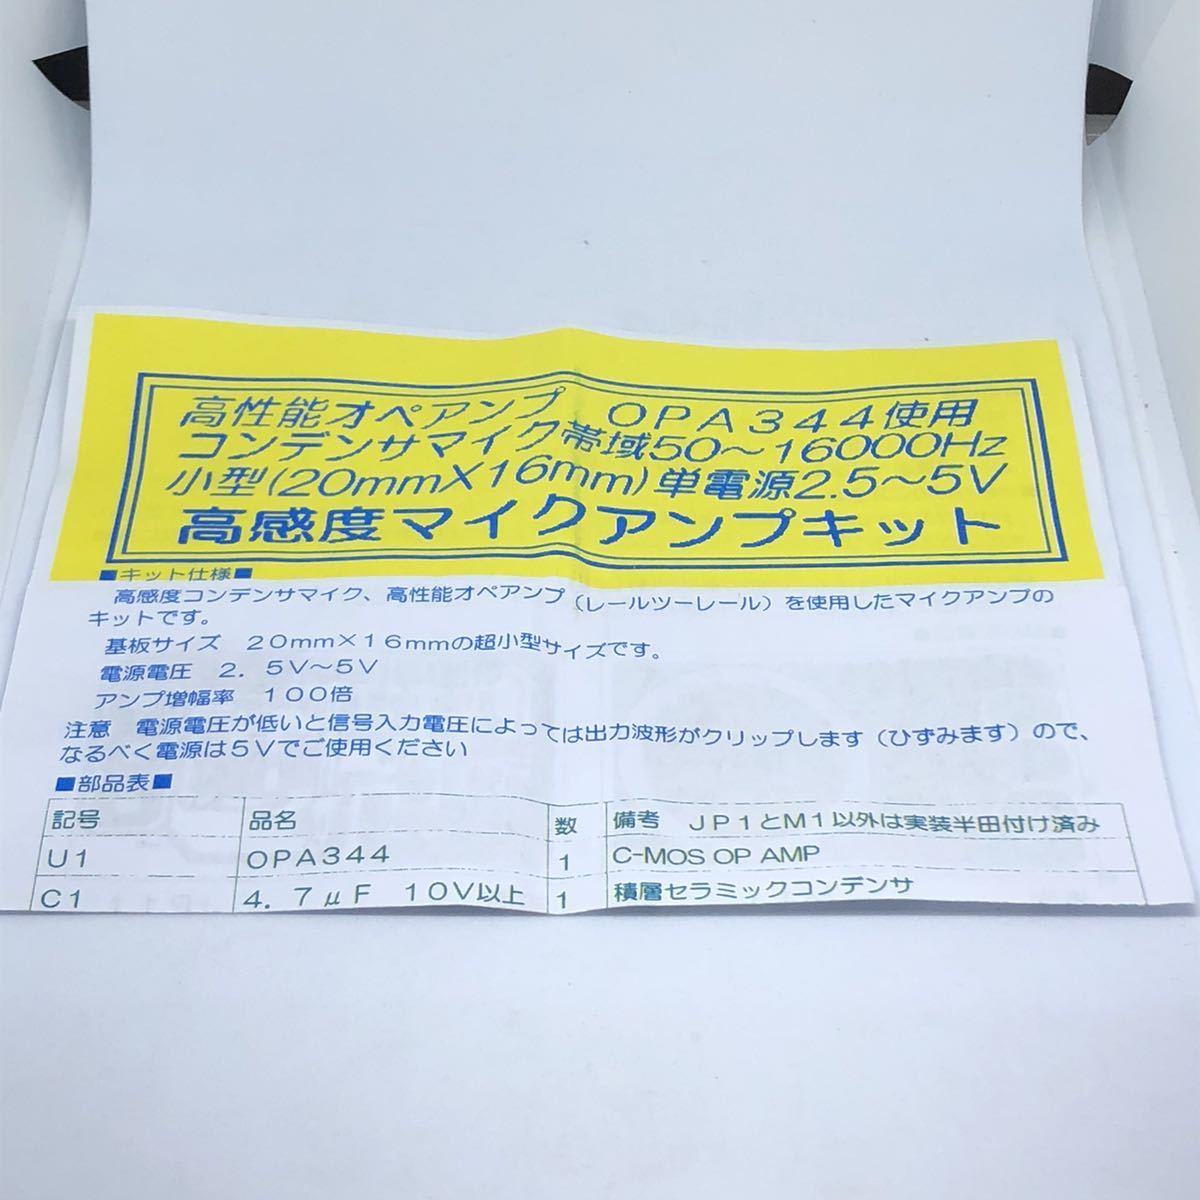 高性能オペアンプ　OPA344使用
コンデンサマイク帯域50～16000Hz
小型(20mmX16mm)単電源2.5～5V
高感度マイクアンプキット
■キット仕様■
高感度コンデンサマイク、高性能オペアンプ（レールツーレール）を使用したマイクアンプの
キットです。
基板サイズ　20mm×16mmの超小型サイズです。
電源電圧　2．5V～5V
アンプ増幅率　100倍
注意　電源電圧が低いと信号入力電圧によっては出力波形がクリップします（ひずみます）ので、
なるべく電源は5Vでご使用ください
■部品表■
記号　品名　数　備考　JP1とM1以外は実装半田付け済み
U1　OPA344　1　C-MOS OP AMP
C1　4．7μF　10V以上　1　積層セラミックコンデンサ